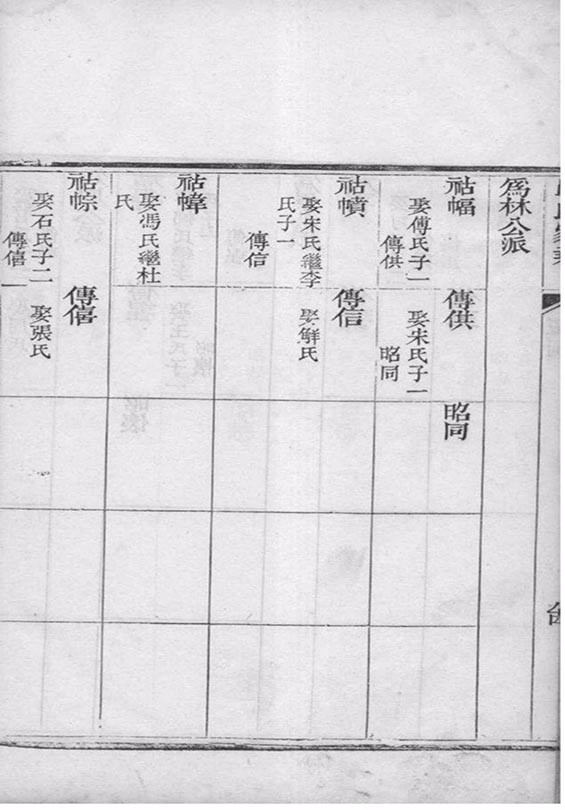 爲林公派
祜幅
娶傅氏子一
傳供
傳供
娶朱氏子一
昭同
昭同
祜幩
娶朱氏繼李
氏子一
傳信
傳信
娶鮮氏
祜幃
娶馮氏繼杜
氏
祜幒
娶石氏子二
傳僖
傳僖
娶張氏